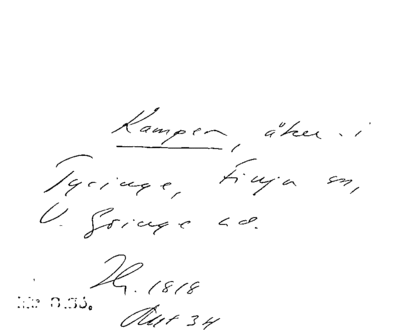 Kampen, åker i
Tyringe, Finja sn,
V. Göinge hd.
1818
Akt 34